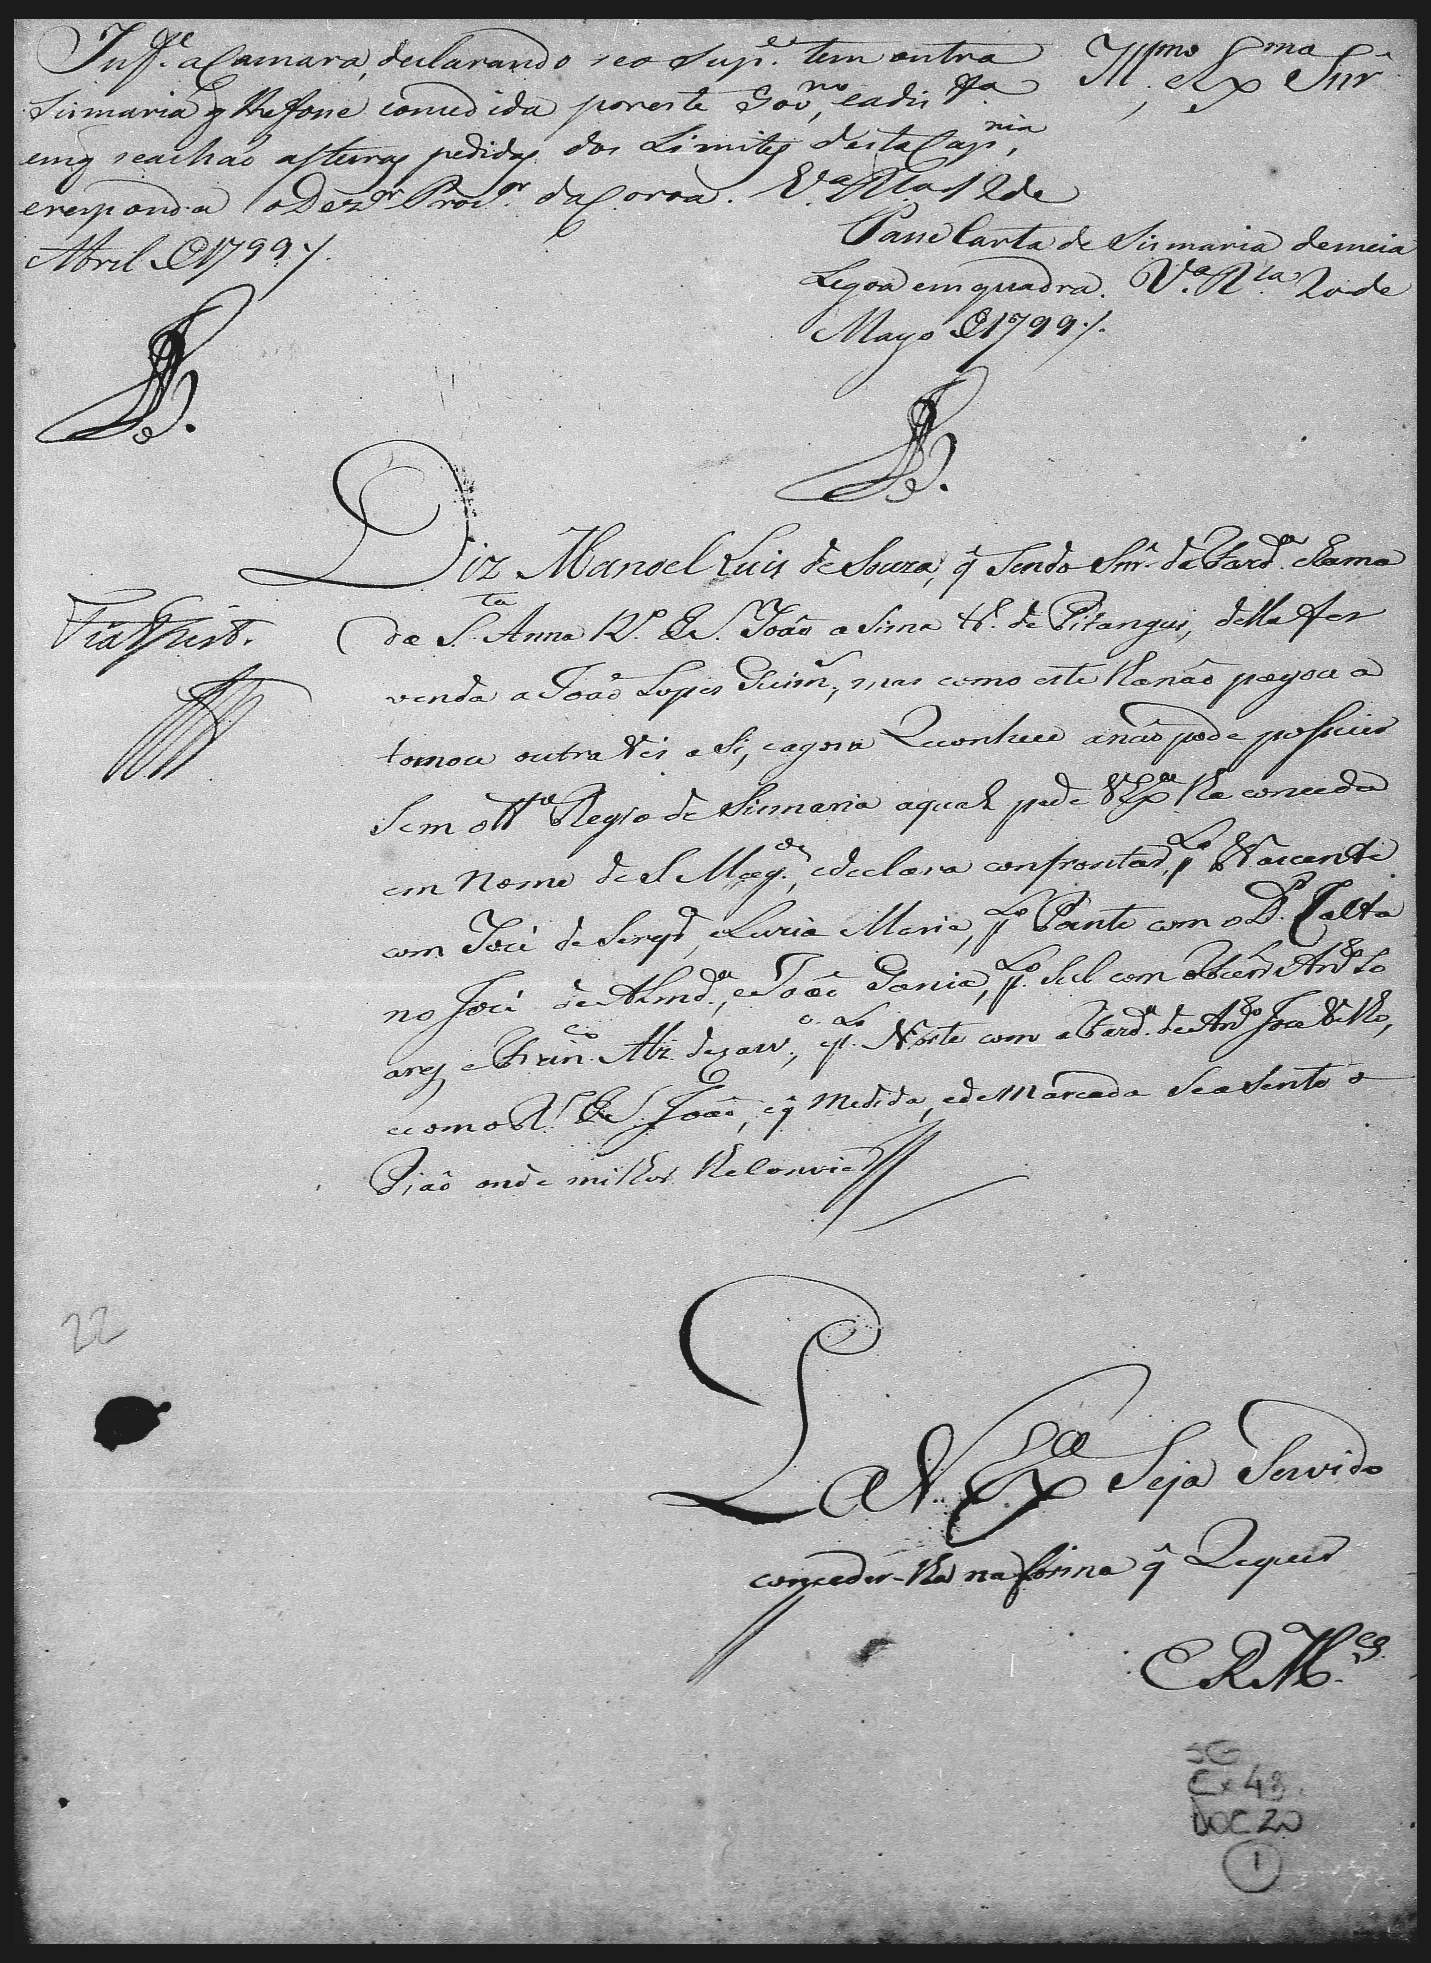 Inf.e a Camara, declarando se o Sup.e tem outra
Sismaria q lhe fose concedida por este Gov.no, e a dis.ta
em q se achaõ as terras pedidas dos Limites desta Cap.nia,
e responda o Dez.or Proc.or da Coroa. V.a R.ca 12 de
Abril de 1799 /.
Ill.mo e Ex.mo Snr.
Passe Carta de Sismaria de meia
Legoa em quadra. V.a R.ca 20 de
Mayo de 1799 /.
Diz Manoel Luis de Souza, q̃ Sendo Snr. da Fazd.a chama
da S.ta Anna R.o de S. Joaõ a sima tr.o de Pitangui, della fez
venda a Joaõ Lopes Guim.s, mas como este lha naõ pagou a
tomou outra Ves a Si, e agora Reconhece a naõ pode possuir
Sem o tt.o Regio de Sismaria a qual pede V Ex.a lha conceda
em Nome de S Mag.de, e declara confrontar, p.lo Nascente
com José de Serq.a, e Luzia Maria, p.lo Poente com o P. Caeta
no José de Almd.a, e Joaõ Garcia, p.lo Sul com
e Fran.co Alz. de, e p.lo Norte com a Fazd.a de An.to José Velho,
e com o R.o de S. Joaõ, e q̃ Medida, e de Marcada Se a Sente o
Piaõ onde milhor lhe Convier
22
P. a V. Ex.a Seja Servido
conceder-lha na forma q̃ Requer
E R M.ce
SG
Cx 48
DOC 20
1